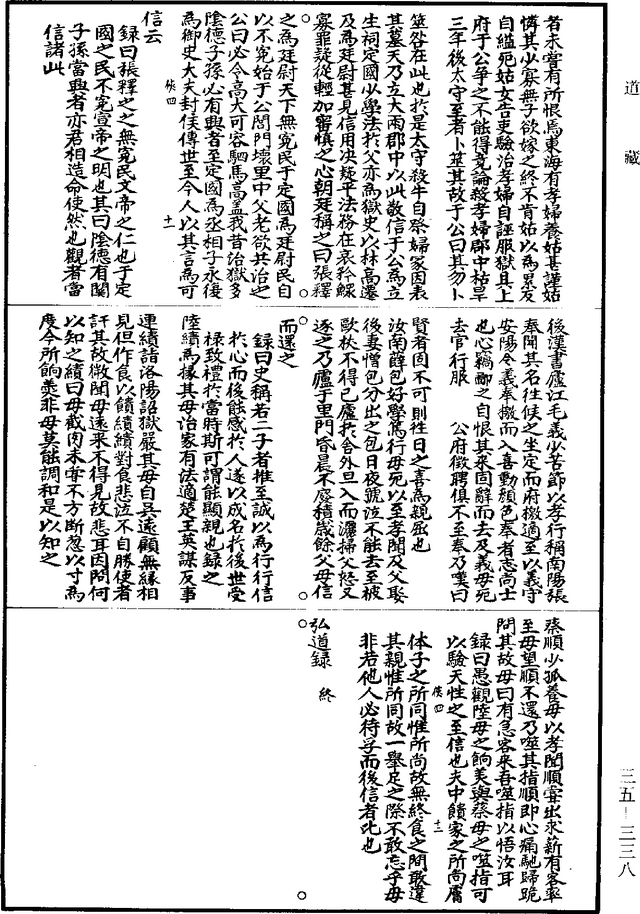 道藏
者未嘗有所恨焉東海有孝婦養姑甚謹姑
憐其少寡無子欲嫁之終不肯姑以為累反
自縊死姑女告吏驗治孝婦自誣服獄具上
府于公爭之不能得竟論殺孝婦郡中枯旱
三年後太守至者卜筮其故于公曰其勿卜
筮咎在此也於是太守殺牛自祭婦冢因表
其墓天乃立大雨郡中以此敬信于公為立
生祠定國少學法於父亦為獄史以材高遷
及為廷尉甚見信用決疑平法務在哀矜鰥
寡罪疑從輕加審慎之心朝廷稱之曰張釋
之為廷尉天下無冤民于定國為廷尉民自
以不冤始于公閭門壞里中父老欲共治之
公曰必令高大可容駟馬高蓋我昔治獄多
陰德子孫必有興者至定國為丞相子永復
為御史大夫封侯傳世至今人以其言為可
俟四 十一
信云
錄曰張釋之之無冤民文帝之仁也于定
國之民不冤宣帝之明也其曰陰德有關
子孫當興者亦君相造命使然也觀者當
信諸此
後漢書廬江毛義少苦節以孝行稱南陽張
奉聞其名往候之坐定而府檄適至以義守
安陽令義奉檄而入喜動顏色奉者志尚士
也心竊鄙之自恨其來固辭而去及義母死
去官行服 公府徵聘俱不至奉乃嘆曰
賢者固不可測往日之喜為親屈也
汝南薛包好學篤行母死以至孝聞及父娶
後妻憎包分出之包日夜號泣不能去至被
歐杖不得已廬於舍外旦入而灑掃父怒又
逐之乃廬于里門昏晨不廢積歲餘父母信
而還之
錄曰史稱若二子者推至誠以為行行信
於心而後能感於人遂以成名於後世受
祿致禮於當時斯可謂能顯親也錄之
陸續為掾其母治家有法適楚王英謀反事
連續諸洛陽詔獄嚴其母自吳遠顧無緣相
見但作食以饋續續對食悲泣不自勝使者
訝其故微聞母遠來不得見故悲耳因問何
以知之續曰母截肉未嘗不方斷葱以寸為
度今所餉羹非母莫能調和是以知之
蔡順少孤養母以孝聞順嘗出求薪有客卒
至母望順不還乃噬其指順即心痛馳歸跪
問其故母曰有急客來吾噬指以悟汝耳
錄曰愚觀陸母之餉羹與蔡母之噬指可
以驗天性之至信也夫中饋家之所尚膚
俟四 十二
体子之所同惟所尚故無終食之間敢違
其親惟所同故一舉足之際不敢忘乎母
非若他人必待孚而後信者比也
弘道錄 終
三五－三三八